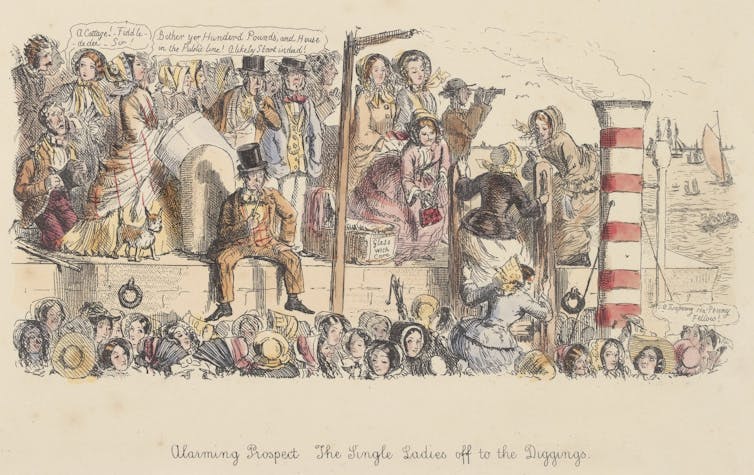 A Cottage! - Fiddle-
de-dee - Sir
Bother yer Hunderd Pounds, and House
in the Public line! A likely Start indeed!
Glass
with
Fellows!
Alarming Prospect The Single Ladies off to the Diggings.